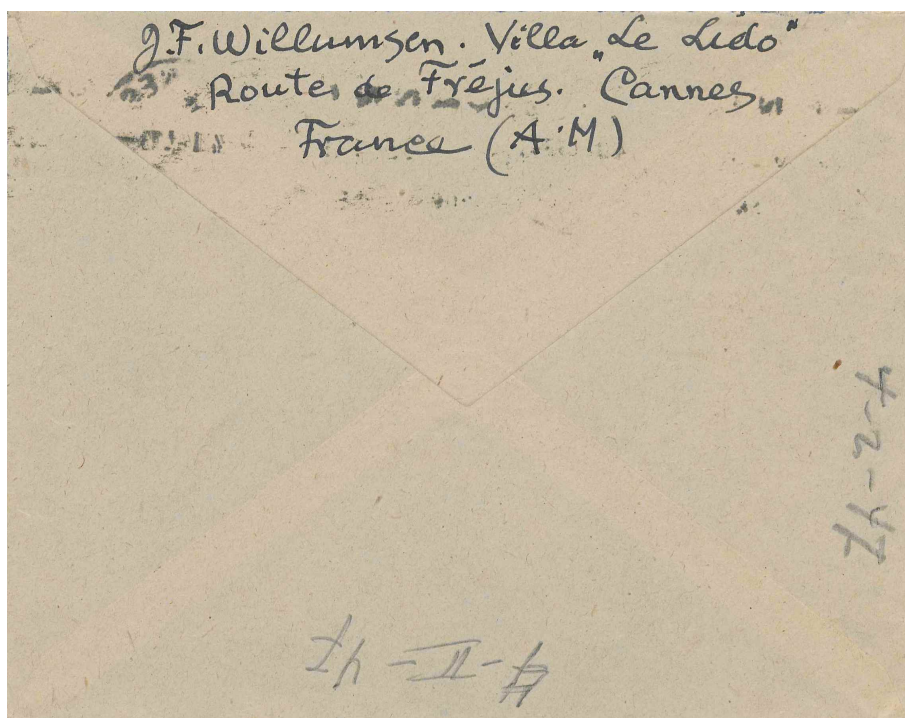 J.F. Willumsen. Villa „Le Lido"
Route de Fréjus. Cannes
France (A.M)
4-2-47
4-II-47